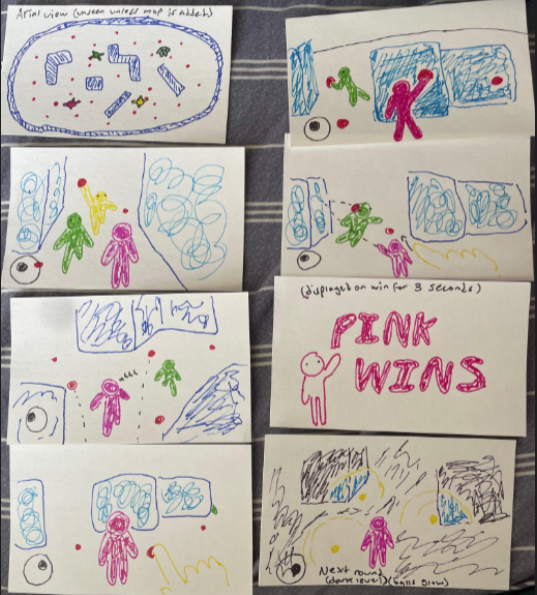 Arial view (unseen unless map is added)
(displayed on win for 3 seconds)
PINK
WINS
Next round
(dark level) (balls glow)